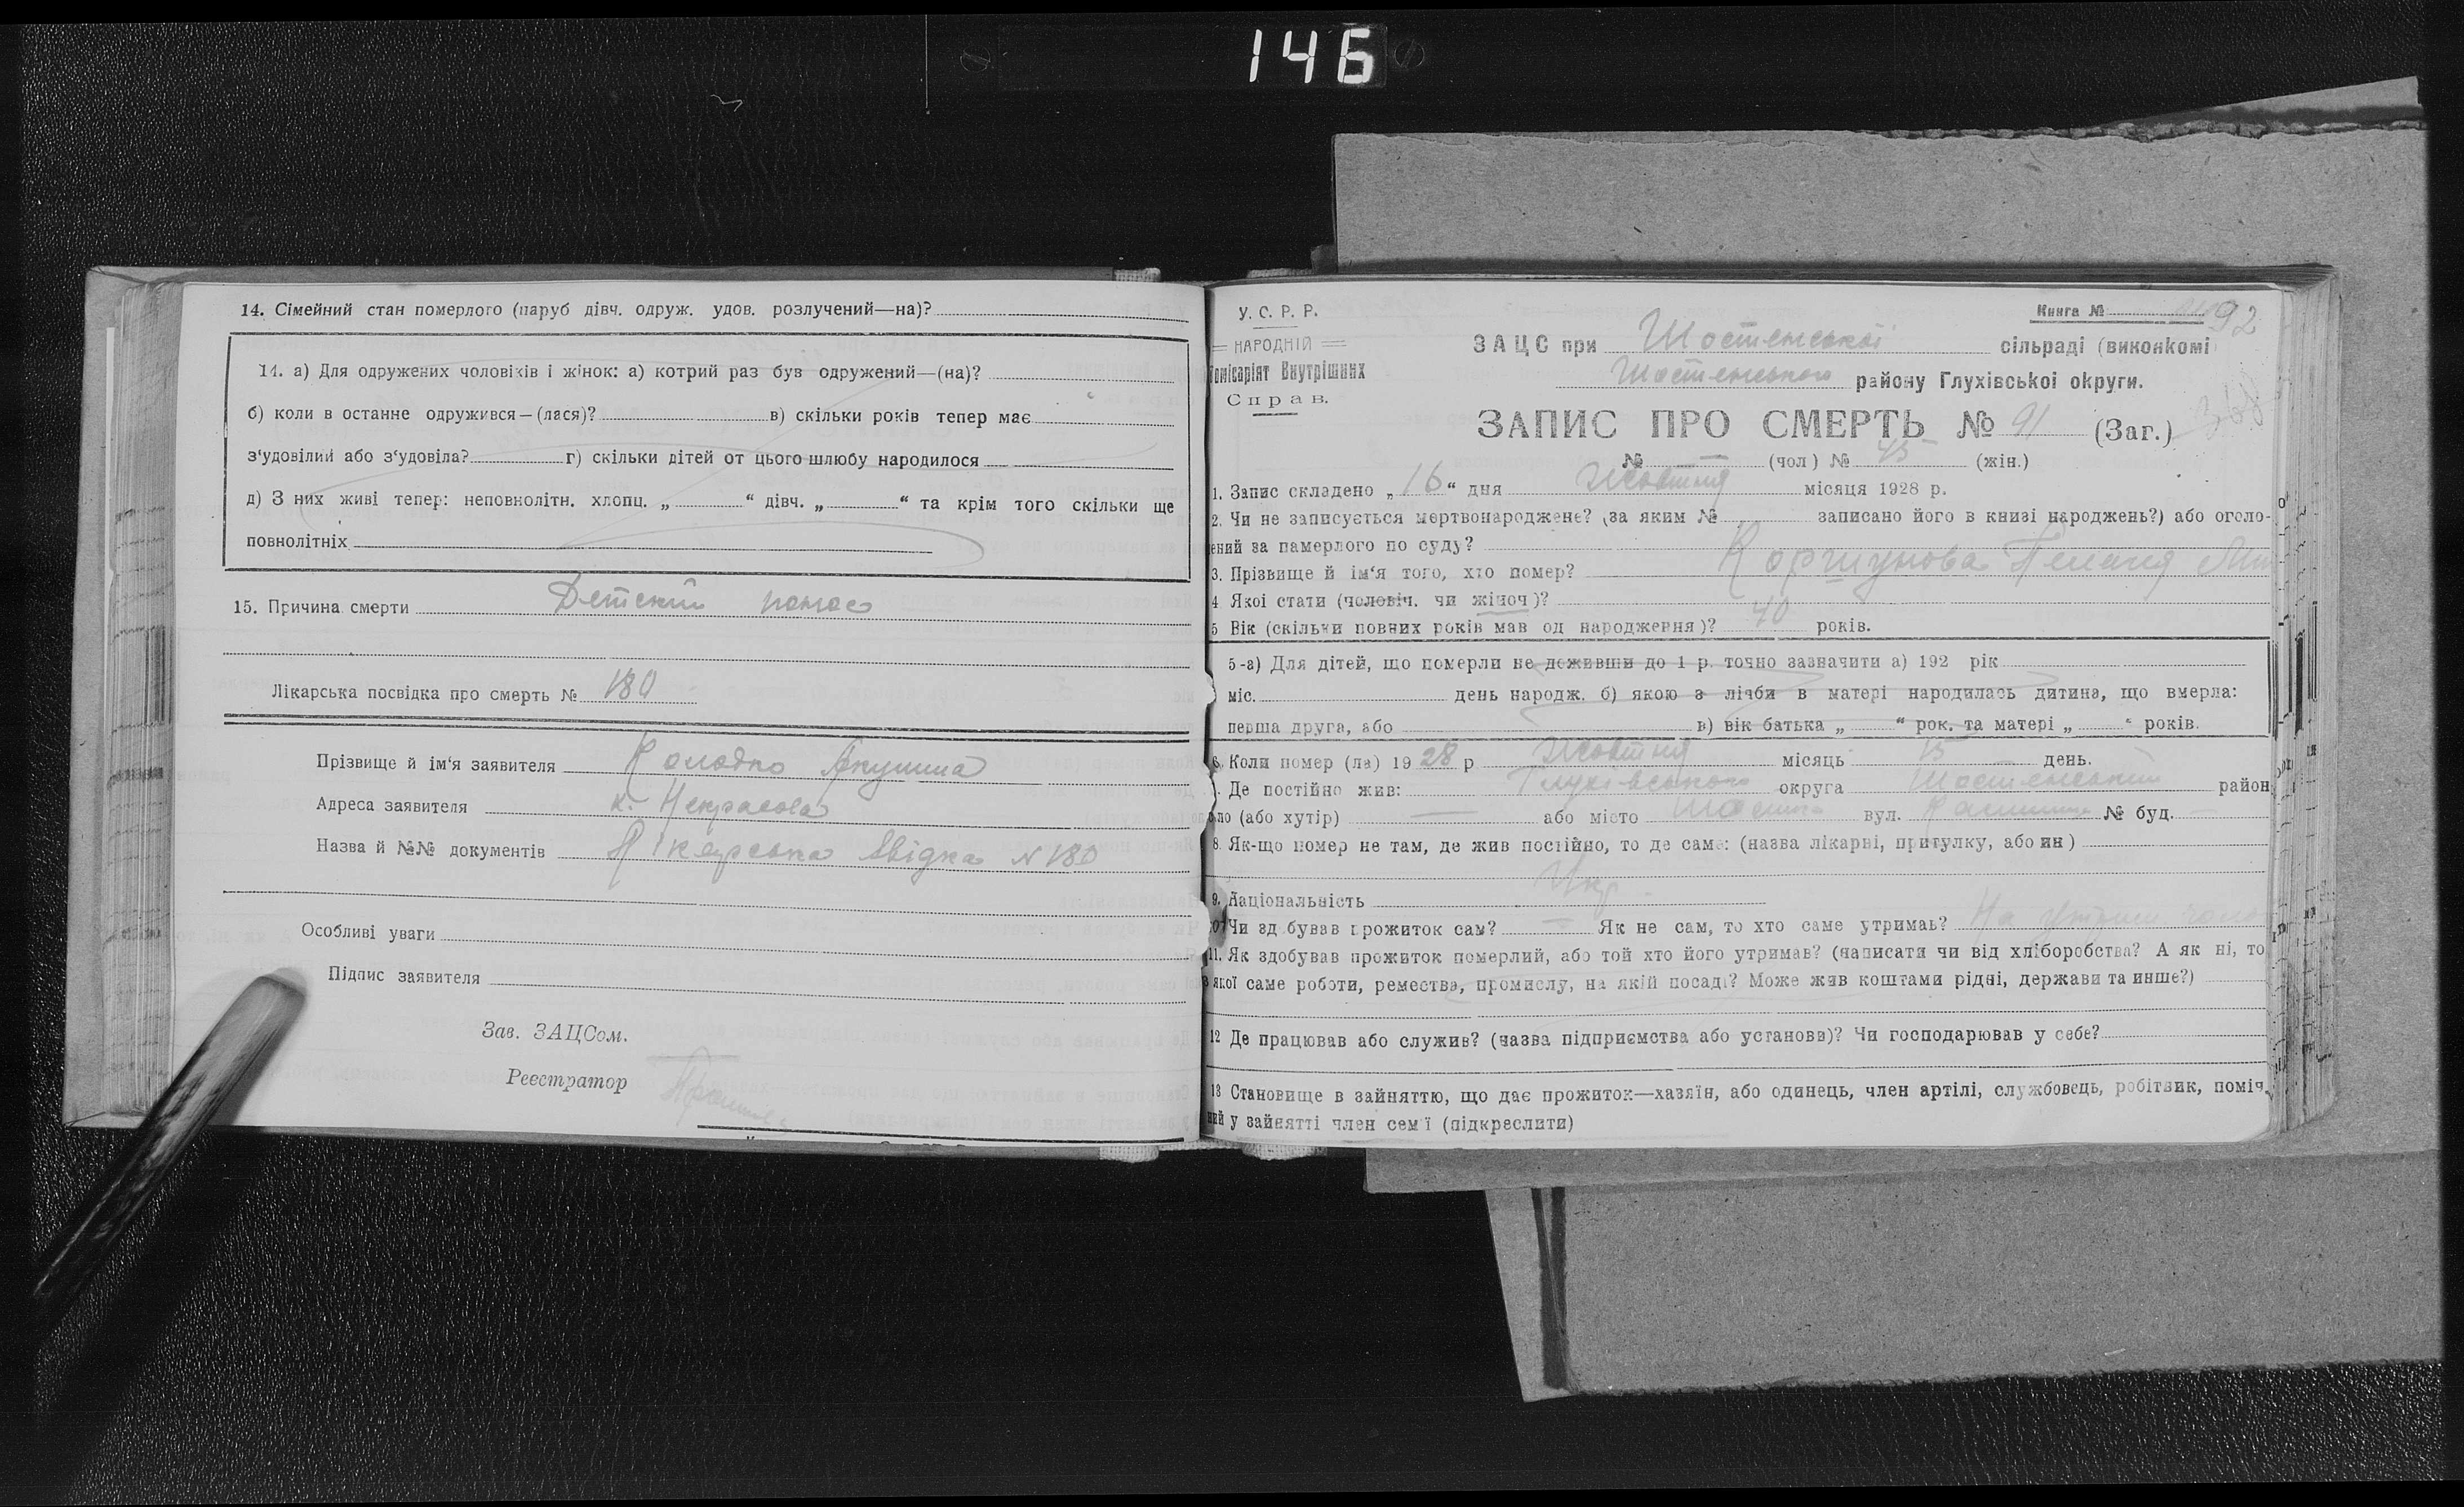 146
14. Сімейний стан померлого (паруб дівч. одруж. удов. розлучений—на)?
14. а) Для одружених чоловіків і жінок: а) котрий раз був одружений—(на)?
б) коли в останне одружився—(лася)? в) скільки років тепер має
з'удовілий або з'удовіла? г) скільки дітей от цього шлюбу народилося
д) З них живі тепер: неповнолітн. хлопц. „ “ дівч. „ “ та крім того скільки ще
повнолітніх
15. Причина смерти Детский
Лікарська посвідка про смерть № 180
Прізвище й ім'я заявителя Колодко
Адреса заявителя к. Некрасова
Назва й №№ документів Лікарська Свідка N 180
Особливі уваги
Підпис заявителя
Зав. ЗАЦСом.
Реєстратор
У. С. Р. Р.
НАРОДНІЙ
Комісаріят Внутрішних
Справ.
Книга №
92
ЗАЦС при Шостенської сільраді (виконкомі
Шостенського району Глухівської округи.
ЗАПИС ПРО СМЕРТЬ № 91 (Заг.)
№ — (чол) № 45 (жін.)
1. Запис складено „16“ дня Жовтня місяця 1928 р.
2. Чи не записується мертвонароджене? (за яким № записано його в книзі народжень?) або оголо-
ений за памерлого по суду?
3. Прізвище й ім'я того, хто помер? Коршунова
4 Якої стати (чоловіч. чи жіноч)?
5 Вік (скільки повних років мав од народження)? 40 років.
5-а) Для дітей, що померли не доживши до 1 р. точно зазначити а) 192 рік
міс. день народж. б) якою з лічби в матері народилась дитина, що вмерла:
перша друга, або в) вік батька „ “ рок. та матері „ “ років.
6. Коли помер (ла) 1928 р Жовтня місяць 15 день.
. Де постійно жив: Глухівського округа Шостенський район
ло (або хутір) — або місто Шостка вул. № буд. —
8. Як-що помер не там, де жив постійно, то де саме: (назва лікарні, притулку, або ин)
9. Національність Укр.
Чи здбував прожиток сам? — Як не сам, то хто саме утримав? На
11. Як здобував прожиток померлий, або той хто його утримав? (написати чи від хліборобства? А як ні, то
якої саме роботи, ремества, промислу, на якій посаді? Може жив коштами рідні, держави та инше?)
12 Де працював або служив? (назва підприємства або установи)? Чи господарював у себе?
13 Становище в зайняттю, що дає прожиток—хазяїн, або одинець, член артілі, службовець, робітвик, поміч.
ний у зайнятті член сем'ї (підкреслити)